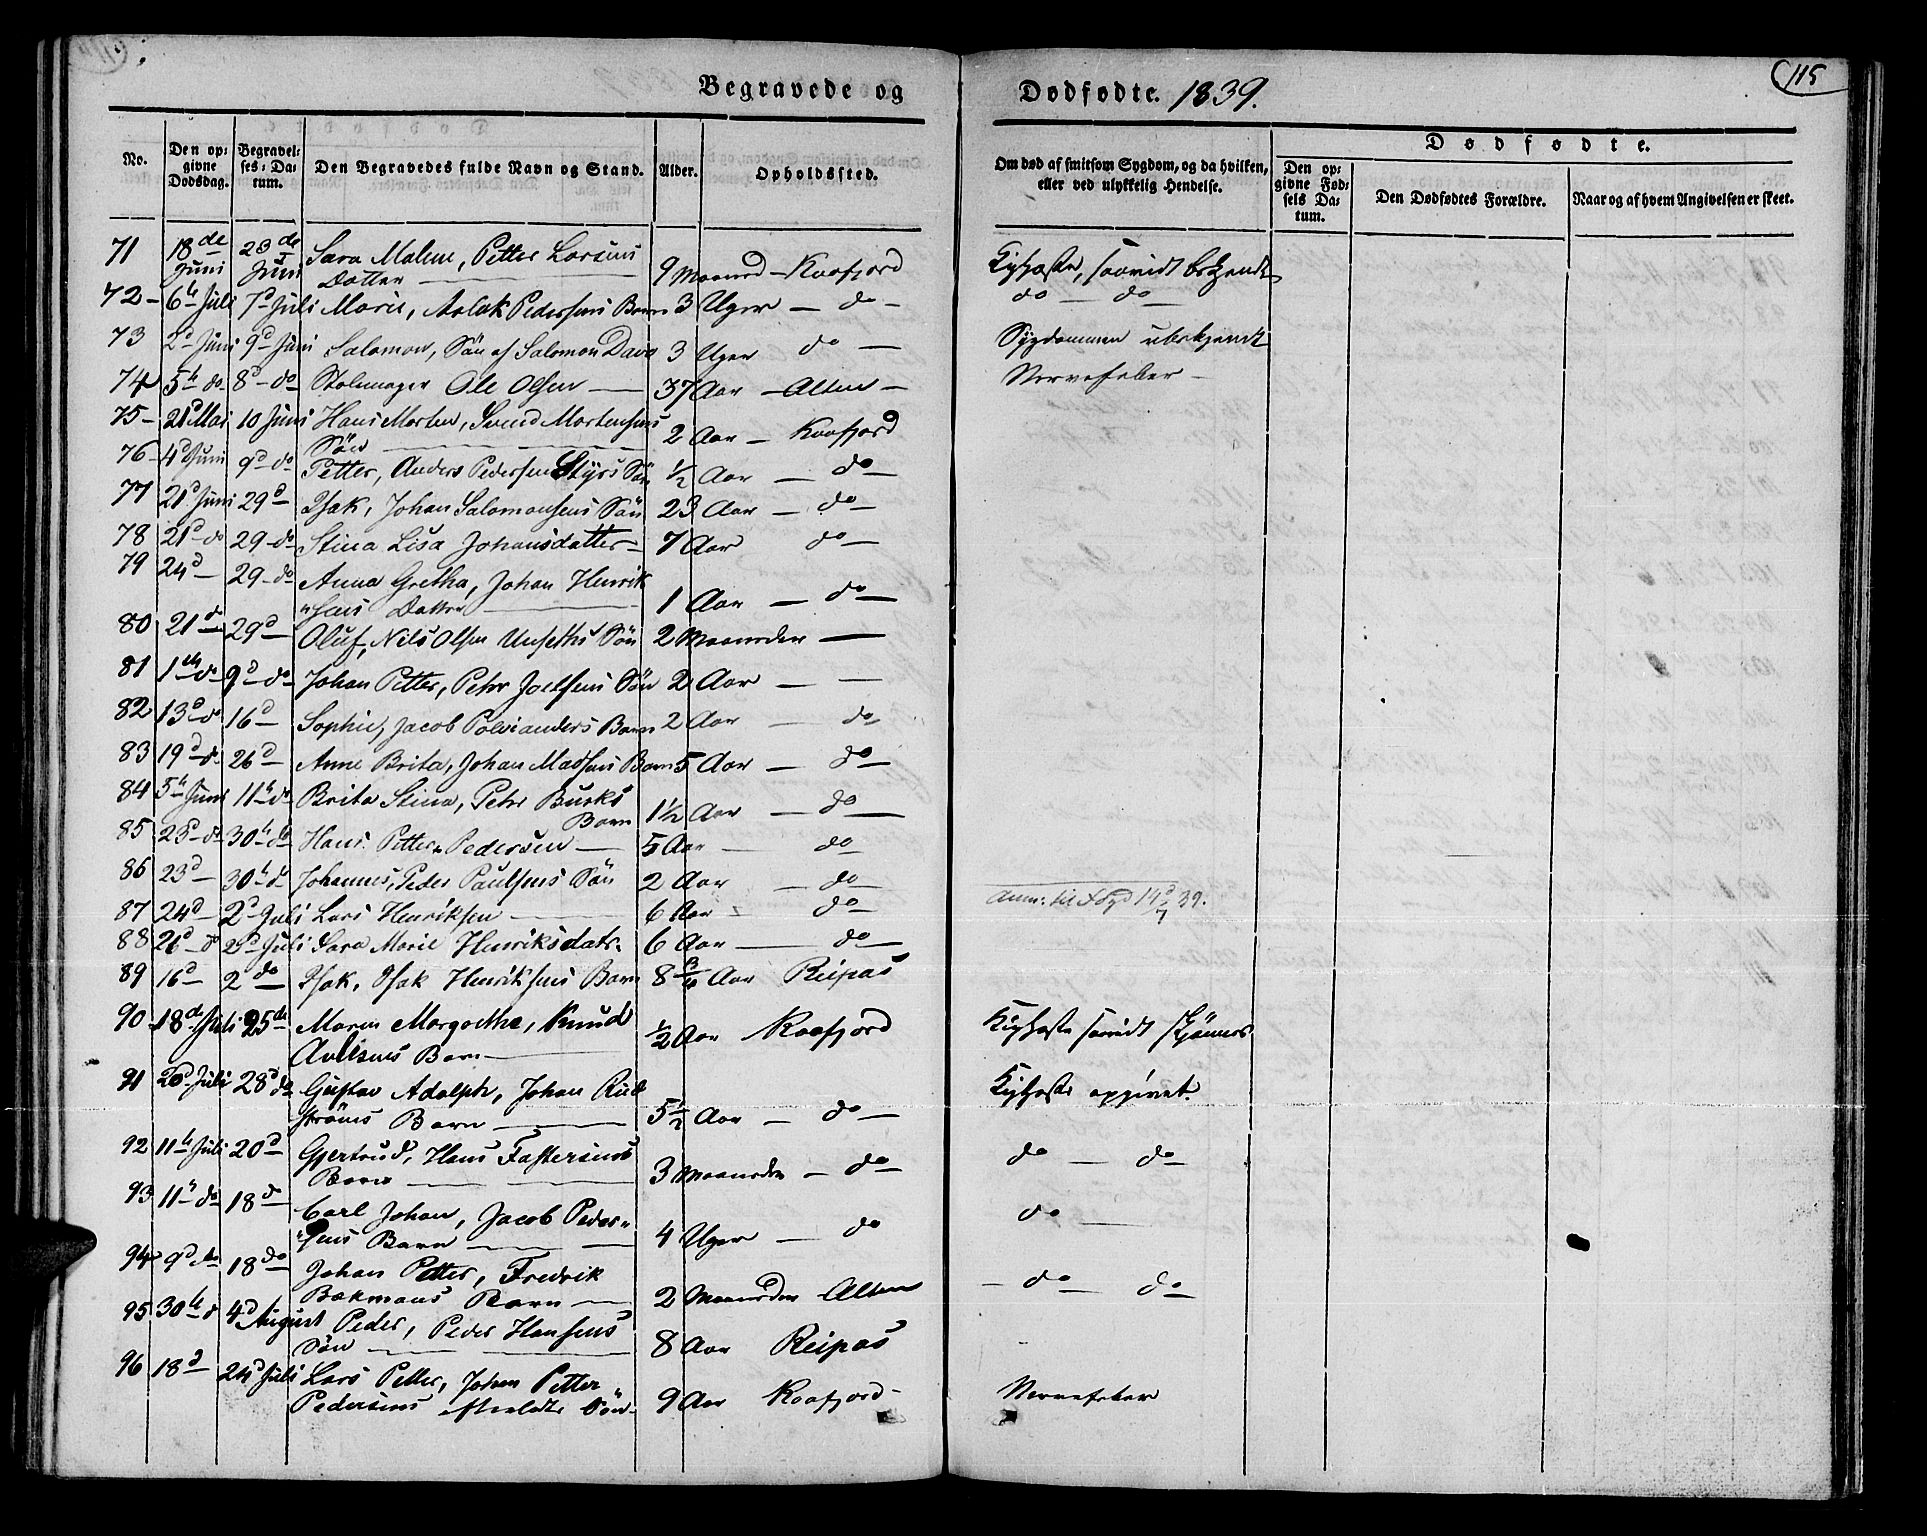 Begravede og Dødfødte. 1839.
115
No.
Den opgivne Dødsdag.
Begravelses-Datum.
Den Begravedes fulde Navn og Stand.
Alder.
Opholdssted.
Om død af smitsom Sygdom, og da hvilken, eller ved ulykkelig Hendelse.
Dødfødte.
Den opgivne Fødsels Datum.
Den Dødfødtes Forældre.
Naar og af hvem Angivelsen er skeet.
71 18de Juni 23de Juni Sara Malene, Petter Larsens
Datter — 9 Maaned — Kaafjord Kighoste, saavidt bekjendt
72 - 6te Juli 7d Juli Marie, Aslak Pedersens Barn 3 Uger — do — do — do
73 2d Juni 9d Juni Salomon, Søn af Salomon Dava 3 Uger do — Sygdommen ubekjendt
74 5te do 8d - do Ole Olsen — 37 Aar — Alten — Nervefeber —
75 - 21d Mai 10 Juni Hans Morten, Svend Mortensens
Søn — 2 Aar — Kaafjord
76 - 4d Juni 9d - do Petter, Anders Pedersen Styrs Søn ½ Aar — do —
77 21d Juni 29d Isak, Johan Salomonsens Søn 23 Aar — do —
78 21d - do 29 - do Stina Lisa Johansdatter — 7 Aar do —
79 24d — 29 - do Anna Gretha, Johan Henrik
"sens Datter — 1 Aar — do —
80 21 do 29d — Oluf, Nils Olsen Unseths Søn 2 Maaneder —
81 1te do 9d - do Johan Petter, Pehr Joelsens Søn 2 Aar — —
82 13d - do 16d Sophie, Jacob Barn 2 Aar — do
83 19d - do 26d — Anne Brita, Johan Madsens Barn 5 Aar — do —
84 5te Juni 11te do Brita Stina, Pehr Busks
Barn 1½ Aar — do —
85 23d - do 30te do Hans Petter Pedersen — 5 Aar — do
86 23d — 30te do Johannes, Peder Paulsens Søn 2 Aar — do —
87 24d — 2d Juli Lars Henriksen — 6 Aar - do — Anm: til 14d/7 39.
88 26d - do 2d Juli Sara Marie Henriksdatr. 6 Aar — do —
89 16d — 2 do Isak, Isak Henriksens Barn 8 Aar Reipas
90 18de Juli 25de Maren Margrethe, Knud
Barn — ½ Aar Kaafjord Kighoste saavidt skjønnes
91 26d Juli 28d do Gustav Adolph, Johan Rud
strøms Barn — 5½ Aar — do — Kighoste opgivet.
92 11te Juli 20d Gjertrud, Hans Fastersens
Barn — 3 Maaneder — do do — do
93 11te do 18 do Carl Johan, Jacob Peder"
"sens Barn — 4 Uger — do do —
94 9d do 18 do Johan Petter, Fredrik
Bækmans Barn — 2 Maaneder — Alten — do do —
95 30te d 4d August Peder, Peder Hansens
Søn — 8 Aar Reipas
96 18d — 24d Juli Lars Petter, Johan Petter
Pedersens Søn - 9 Aar Kaafjord — Nervefeber